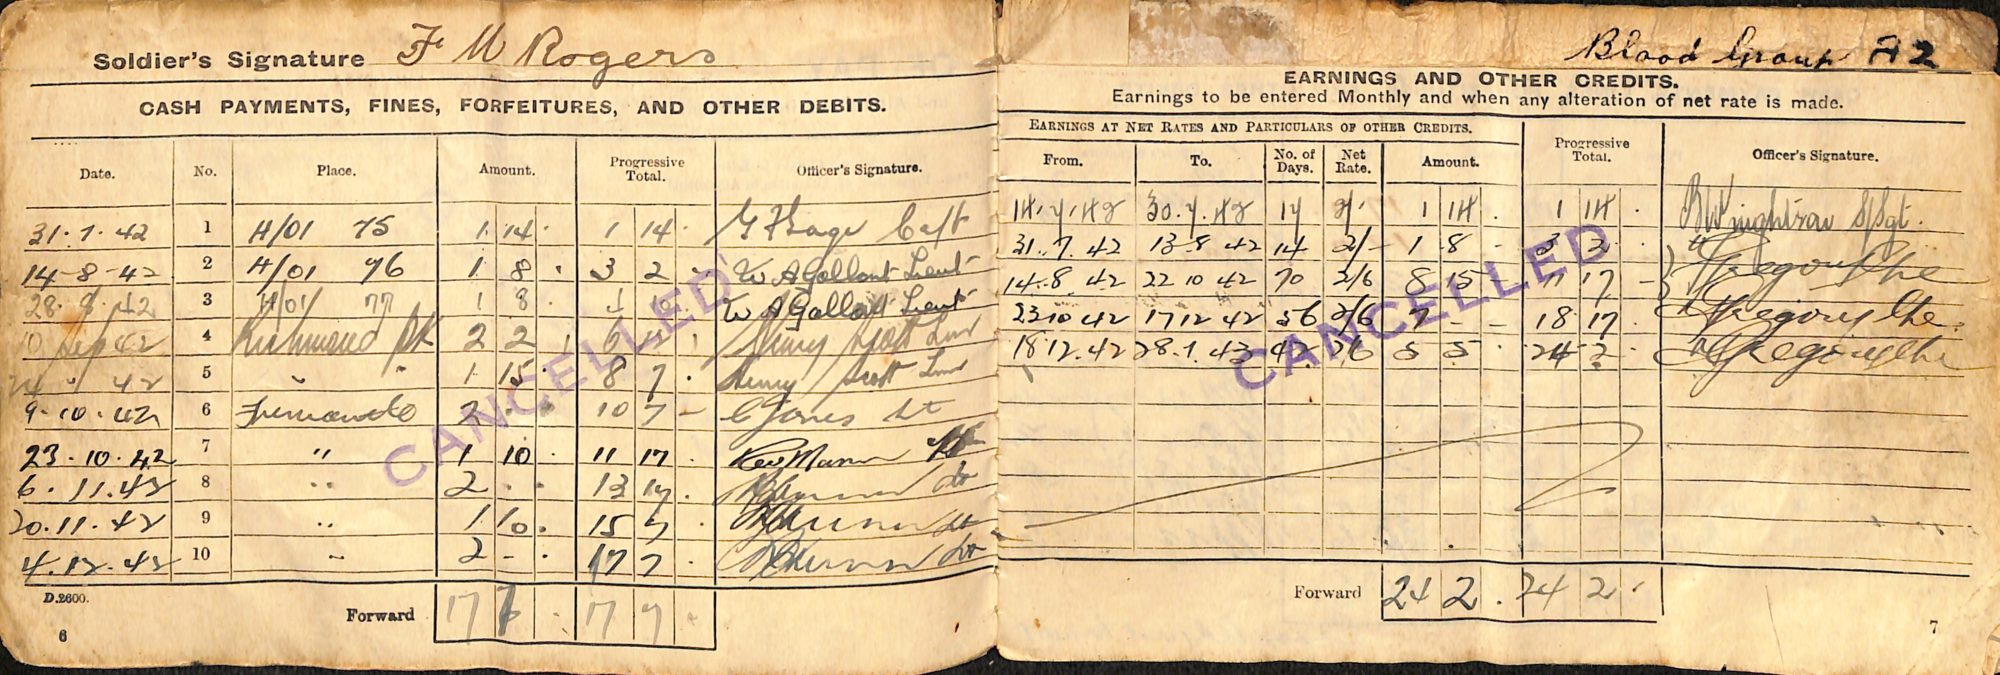 Soldier's Signature F W Rogers
CASH PAYMENTS, FINES, FORFEITURES, AND OTHER DEBITS.
Date. No. Place. Amount. Progressive Total. Officer's Signature.
31.7.42 1 H/01 75 1 14 . 1 14 .
14-8-42 2 H/01 76 1 8 . 3 2 . W A Gallant Lieut
28.8.42 3 H/01 77 1 8 W A Gallant Lieut
10 Sep 42 4 Richmond Pk 2 2 Henry Scott
24 " 42 5 " " 1 15 . 8 7 . Henry Scott
9.10.42 6 2 . . 10 7 - C Jones Lt
23.10.42 7 " 1 10 . 11 17 .
6.11.42 8 " 2 . . 13 17 .
20.11.42 9 " 1 10 . 15 7 .
4.12.42 10 " 2 - . 17 7
D.2600. Forward 17 7 . 17 7 .
6
CANCELLED
Blood Group A2
EARNINGS AND OTHER CREDITS.
Earnings to be entered Monthly and when any alteration of net rate is made.
EARNINGS AT NET RATES AND PARTICULARS OF OTHER CREDITS.
From. To. No. of Days. Net Rate. Amount. Progressive Total. Officer's Signature.
14.7.42 30.7.42 17 2/- 1 14 . 1 14 . S/Sgt.
31.7.42 13-8 42 14 2/- 1 8 - 3 2 -
14.8.42 22 10 42 70 2/6 8 15 17 -
23 10 42 17 12 42 56 2/6 7 - - 18 17
18 12.42 28.1.43 42 2/6 5 5 . 24 2 .
Forward 24 2 . 24 2 .
7
CANCELLED